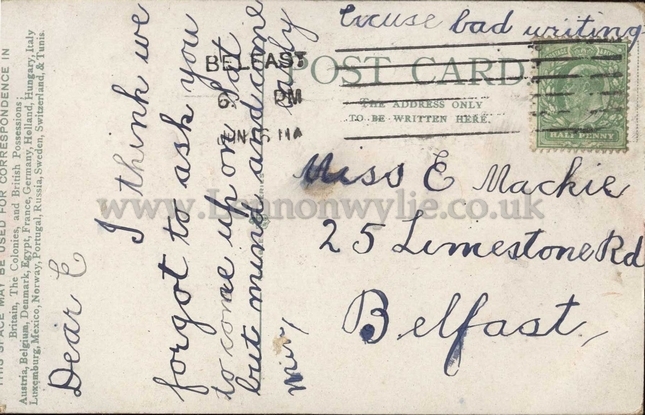 THIS SPACE MAY BE USED FOR CORRESPONDENCE IN
Britain, The Colonies, and British Possessions;
Austria, Belgium, Denmark, Egypt, France, Germany, Holland, Hungary, Italy
Luxemburg, Mexico, Norway, Portugal, Russia, Sweden, Switzerland, & Tunis.
Dear E
I think we
forgot to ask you
to come up on Sat
but mind and come
early
Excuse bad writing
POST CARD
THE ADDRESS ONLY
TO BE WRITTEN HERE.
BELFAST
PM
HALFPENNY
Miss E Mackie
25 Limestone Rd
Belfast
www.Lennonwylie.co.uk